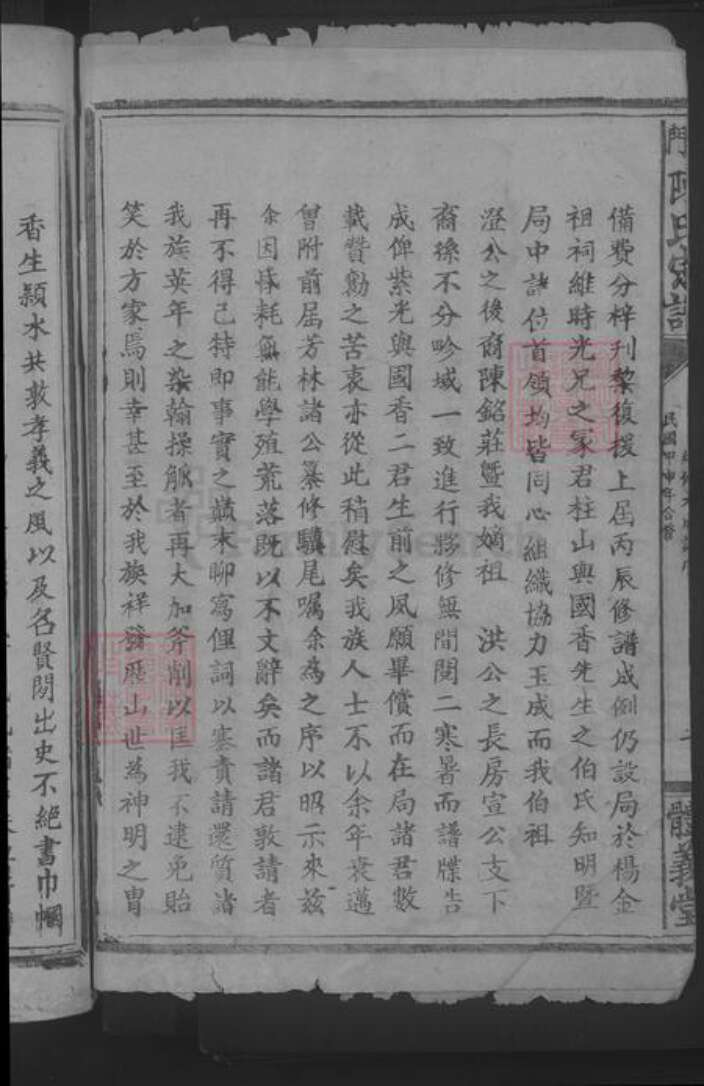 陳氏宗譜
民國甲申年合修
體義堂
備費分梓刊黎復援上屆丙辰修譜成例仍設局於楊金
祖祠維時光兄之冢君柱山與國香先生之伯氏知明暨
局中諸位首領均皆同心組織協力玉成而我伯祖
澄公之後裔陳銘莊暨我嫡祖 洪公之長房宣公支下
裔孫不分畛域一致進行夥修無間閱二寒暑而譜牒告
成俾紫光與國香二君生前之夙願畢償而在局諸君數
載贊勷之苦衷亦從此稍慰矣我族人士不以余年衰邁
曾附前屆芳林諸公纂修驥尾囑余為之序以昭示來茲
余因耗無能學殖荒落既以不文辭矣而諸君敦請者
再不得已特即事實之巔末聊寫俚詞以塞責請還質諸
我族英年之染翰操觚者再大加斧削以匡我不逮免貽
笑於方家焉則幸甚至於我族祥發歷山世為神明之胄
香生潁水共敦孝義之風以及名賢閒出史不絕書巾幗